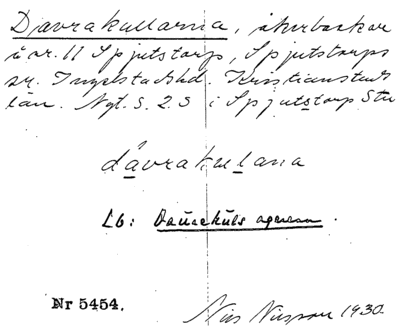 Djävrakullarna, åkerbackar
å nr. 11 Spjutstorp, Spjutstorps
sn. Ingelstads hd. Kristianstads
län. Ngt. S. 2 S i Spjutstorp Stn
dåvrakulana
Lb:
Nr 5454.
Nils Nilsson 1930.